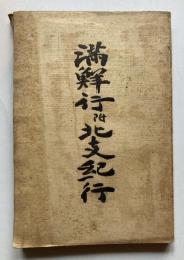 満鮮行附北支紀行